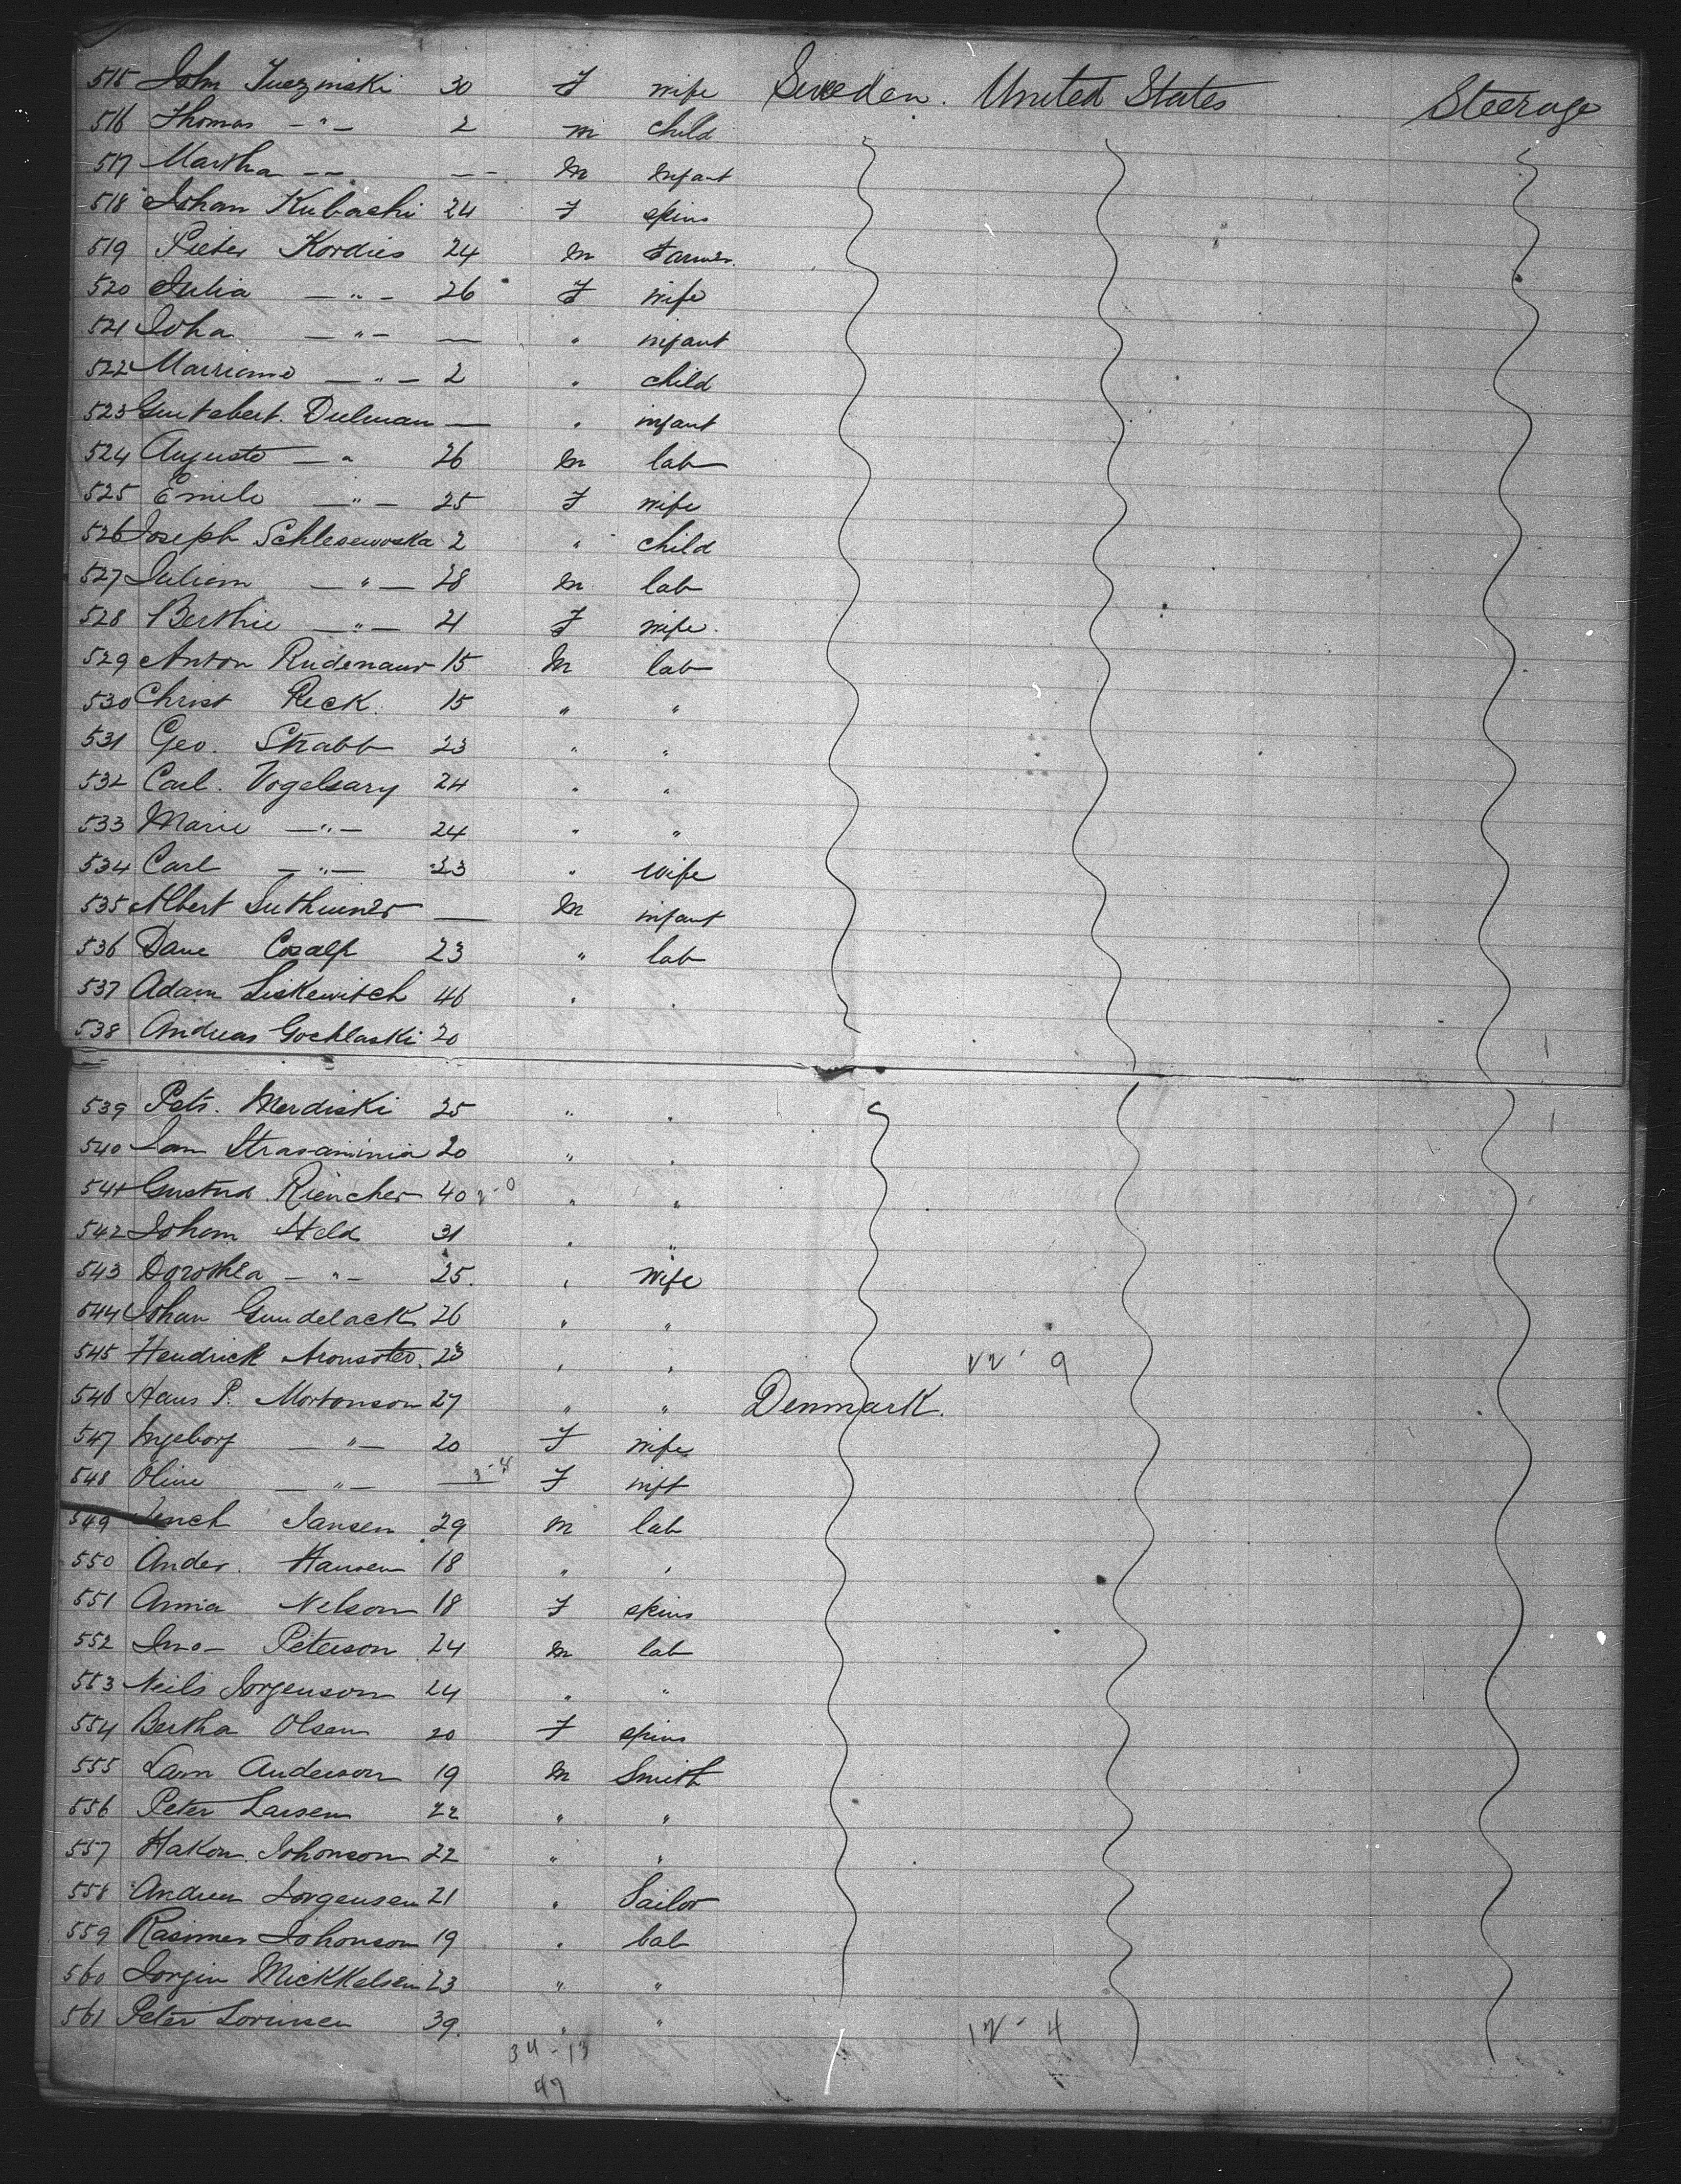 515 John Tuczinski 30 F wife Sweden. United States Steerage
516 Thomas — " — 2 m child
517 Martha — — — — m Infant
518 Johan Kubachi 24 F spins
519 Pieter Kordies 24 m Farmer.
520 Julia — " — 26 F wife
521 Joha — " — — " infant
522 Marriame — " — 2 " child
523 Gut ebert. Dulman — " infant
524 Auguste — " 26 m lab
525 Emile — " — 25 F wife
526 Joseph Schlesewoska 2 " child
527 Juliem — " — 28 m lab
528 Berthie — " — 21 F wife.
529 Anton Rudenaur 15 m lab
530 Christ Reck. 15 " "
531 Geo. Strabb 23 " "
532 Carl. Vogelsary 24 " "
533 Marie — " — 24 " "
534 Carl — " — 23 " wife
535 Albert — m infant
536 Dave 23 " lab
537 Adam Liskewitch 46 " "
538 Andreas Gochlaski 20
539 Petr. Merdiski 25 " "
540 Jam Strasaminia 20 " "
541 Gustud. Riencher 40 2-0 " "
542 Joham Held 31 " "
543 Dorothea — " — 25. " wife
544 Johan Gundelack 26 " "
545 Hendrick 23 " " 12 - 9
546 Hans P. Mortonson 27 " " Denmark.
547 Ingeborg — " — 20 F wife
548 Oline — " — — 3-4 F inft
549 Jench Jansen 29 m lab
550 Ander. Hansen 18 " "
551 Annia Nelson 18 F spins
552 Jno- Peterson 24 m lab
553 Neils Jorgenson 24 " "
554 Bertha Olsen 20 F spins
555 Larn Anderson 19 m Smith
556 Peter Larsen 22 " "
557 Hakon. Johonson 22 " "
558 Andren Jorgensen 21 " Sailor
559 Rasimes Johonson 19 " lab
560 Jorgin Mickkelsein 23 " "
561 Peter Lorinsen 39. " " 12 - 4
34 - 13
47